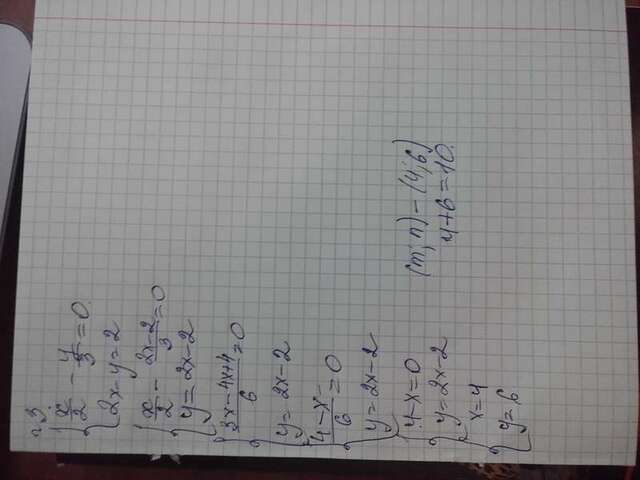 г. 3
x/2 - y/3 = 0
2x - y = 2
x/2 - (2x-2)/3 = 0
y = 2x-2
(3x-4x+4)/6 = 0
y = 2x-2
(4-x)/6 = 0
y = 2x-2
4-x=0
y = 2x-2
x=4
y=6
(m; n) - (4; 6)
4+6=10.